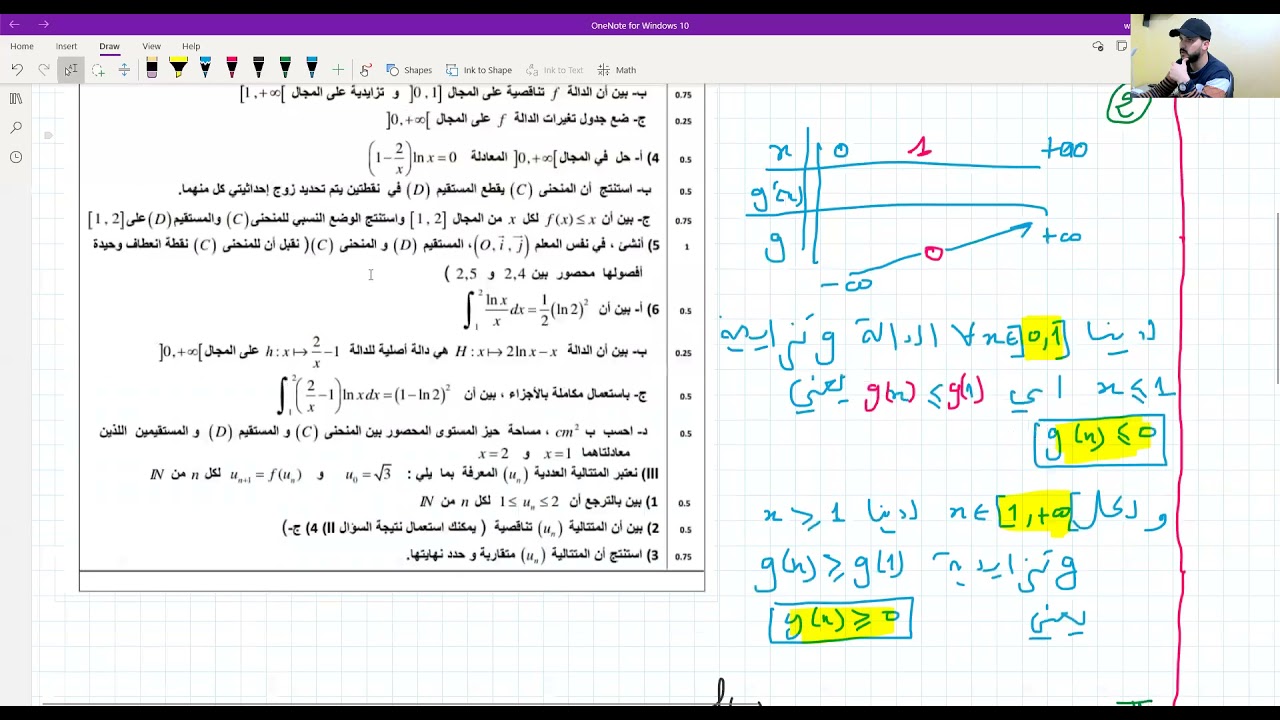 OneNote for Windows 10
Home Insert Draw View Help
Shapes Ink to Shape Ink to Text Math
ب- بين أن الدالة f تناقصية على المجال ]0,1] و تزايدية على المجال [1,+∞[ 0.75
ج- ضع جدول تغيرات الدالة f على المجال ]0,+∞[ 0.25
4) أ- حل في المجال ]0,+∞[ المعادلة (1-2/x)ln x=0 0.5
ب- استنتج أن المنحنى (C) يقطع المستقيم (D) في نقطتين يتم تحديد زوج إحداثيتي كل منهما. 0.5
ج- بين أن f(x)≤x لكل x من المجال [1,2] واستنتج الوضع النسبي للمنحنى (C) والمستقيم (D) على [1,2] 0.75
5) أنشئ ، في نفس المعلم (O,i⃗,j⃗)، المستقيم (D) و المنحنى (C) ( نقبل أن للمنحنى (C) نقطة انعطاف وحيدة 1
أفصولها محصور بين 2,4 و 2,5 )
6) أ- بين أن ∫₁² ln x/x dx = 1/2 (ln 2)² 0.5
ب- بين أن الدالة H : x ↦ 2ln x - x هي دالة أصلية للدالة h : x ↦ 2/x - 1 على المجال ]0,+∞[ 0.25
ج- باستعمال مكاملة بالأجزاء ، بين أن ∫₁² (2/x - 1) ln x dx = (1 - ln 2)² 0.5
د- احسب ب cm² ، مساحة حيز المستوى المحصور بين المنحنى (C) و المستقيم (D) و المستقيمين اللذين 0.5
معادلتاهما x=1 و x=2
III) نعتبر المتتالية العددية (uₙ) المعرفة بما يلي : u₀=√3 و uₙ₊₁=f(uₙ) لكل n من IN
1) بين بالترجع أن 1≤uₙ≤2 لكل n من IN 0.5
2) بين أن المتتالية (uₙ) تناقصية ( يمكنك استعمال نتيجة السؤال II) 4) ج-) 0.5
3) استنتج أن المتتالية (uₙ) متقاربة و حدد نهايتها. 0.75
x 0 1 +∞
g'(x)
g -∞ 0 +∞
لدينا ∀x∈]0,1] الدالة g تزايدية
x≤1 اي g(x)≤g(1) يعني
g(x)≤0
و لكل x∈[1,+∞[ لدينا x≥1
g تزايدية g(x)≥g(1)
يعني g(x)≥0